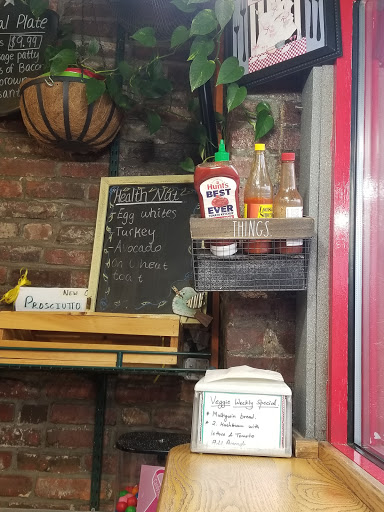 al Plate
$9.99
sage patty
s of Bacon
brown
Health Nut
- Egg whites
- Turkey
- Avocado
- on wheat
toat
Hunt's
BEST
EVER
THINGS
NEW
PROSCIUTTO
Veggie Weekly Special
• Multigrain bread.
• 2 Hashbrown with
lettuce & Tomato